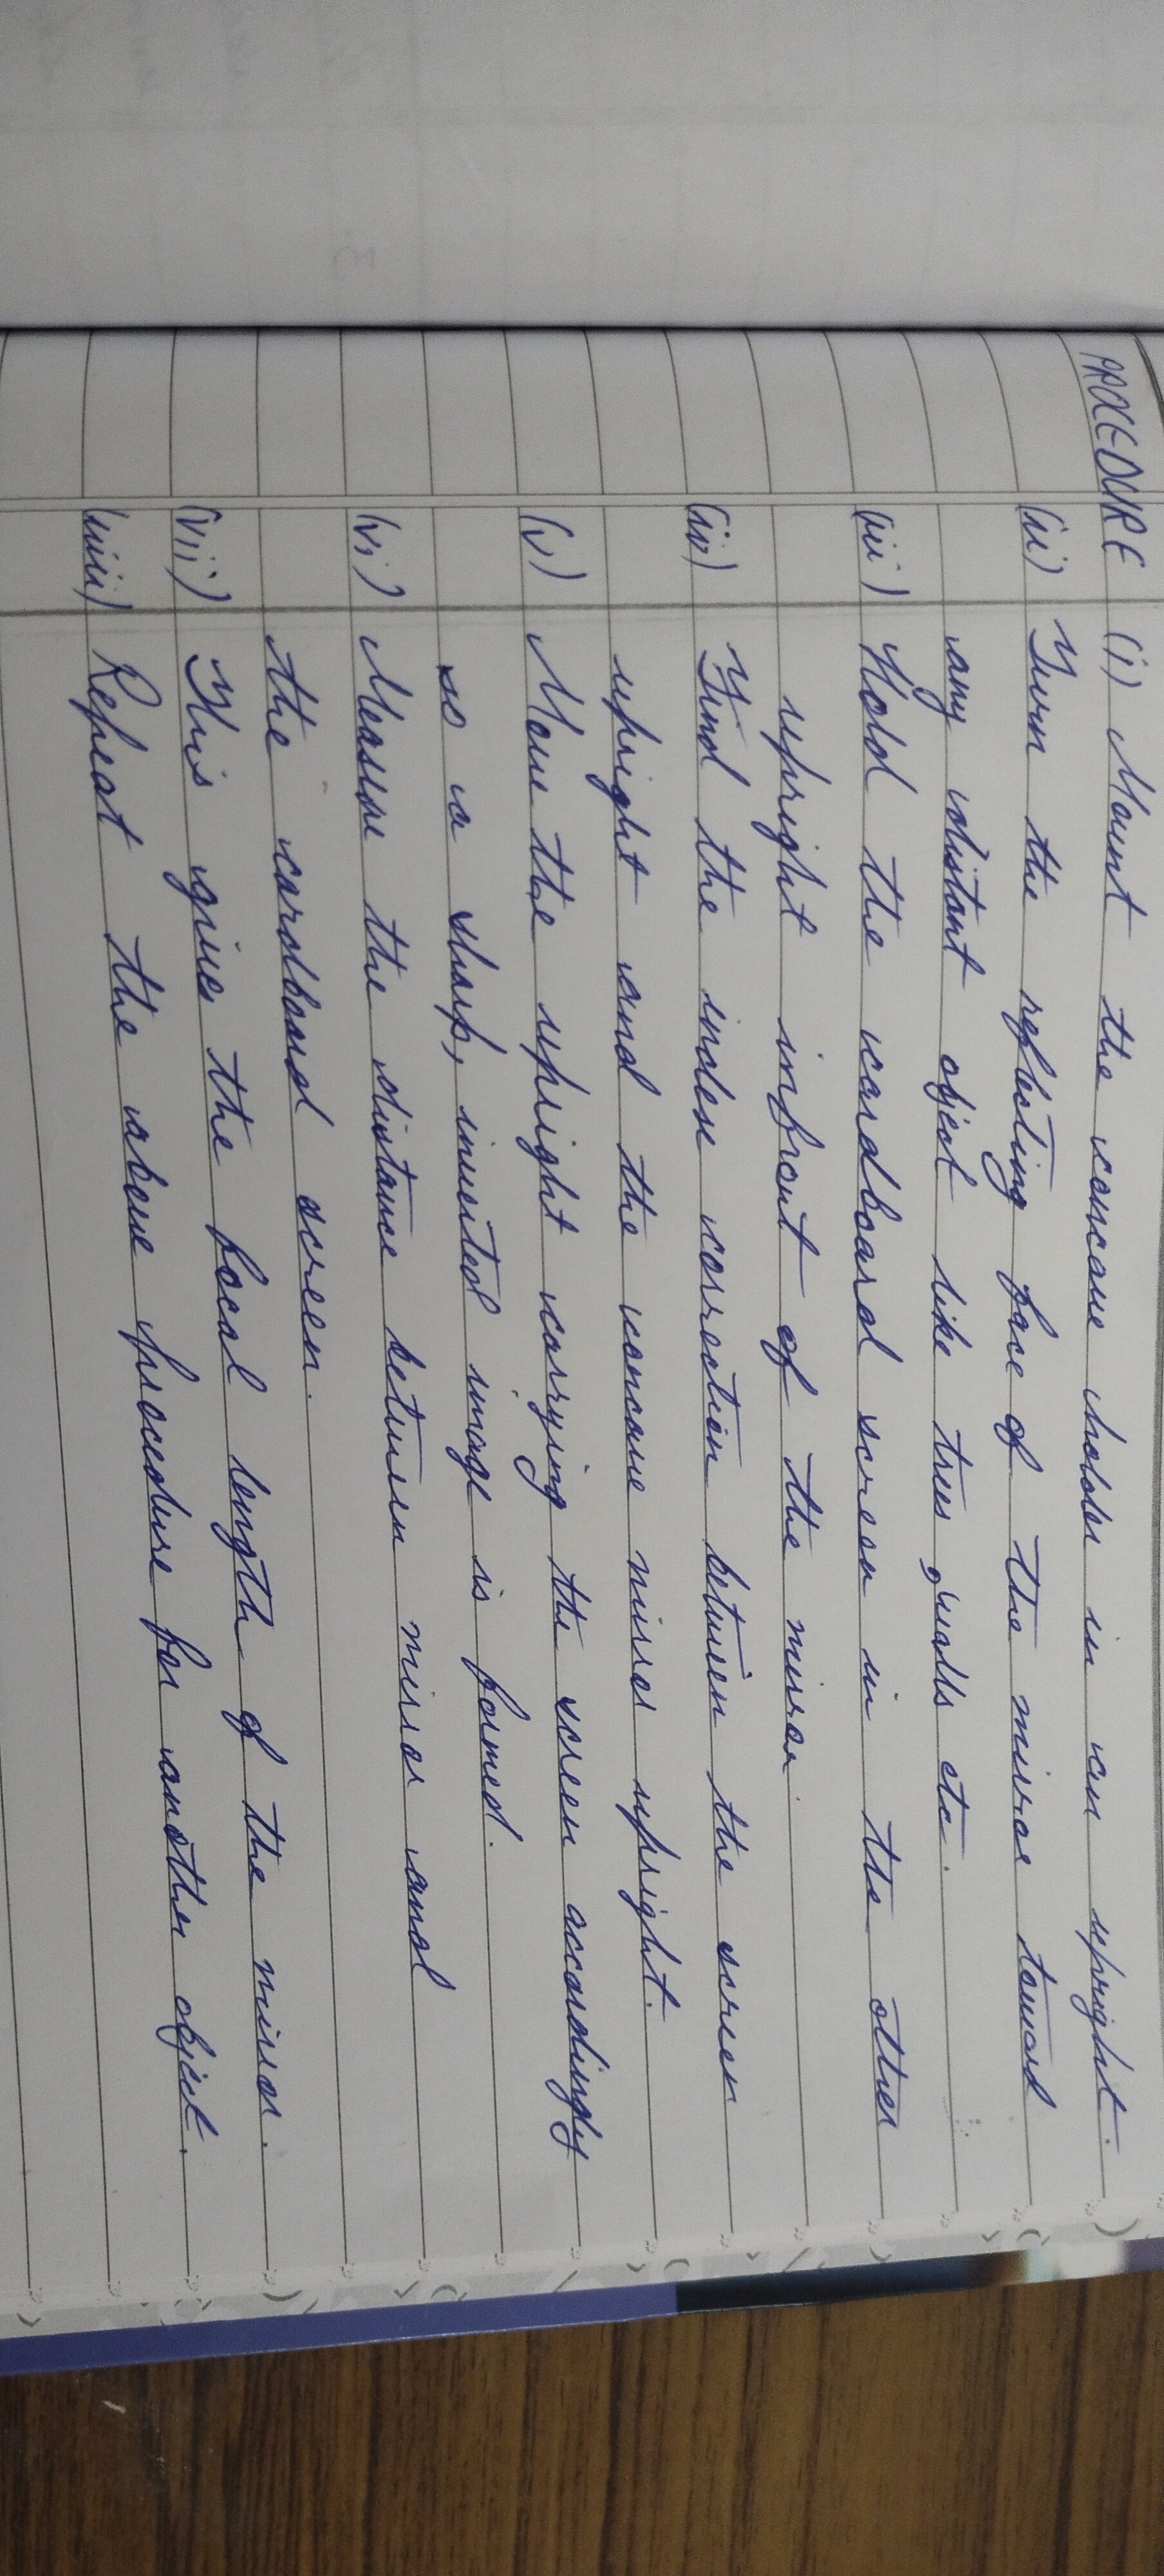 PROCEDURE (i) Mount the concave holder in an upright.
(ii) Turn the reflecting face of the mirror toward
any distant object like trees, walls etc.
(iii) Hold the cardboard screen in the other
upright infront of the mirror.
(iv) Find the index correction between the screen
upright and the concave mirror upright.
(v) Move the upright carrying the screen accordingly
so a sharp, inverted image is formed.
(vi) Measure the distance between mirror and
the cardboard screen.
(vii) This gives the focal length of the mirror.
(viii) Repeat the above procedure for another object.